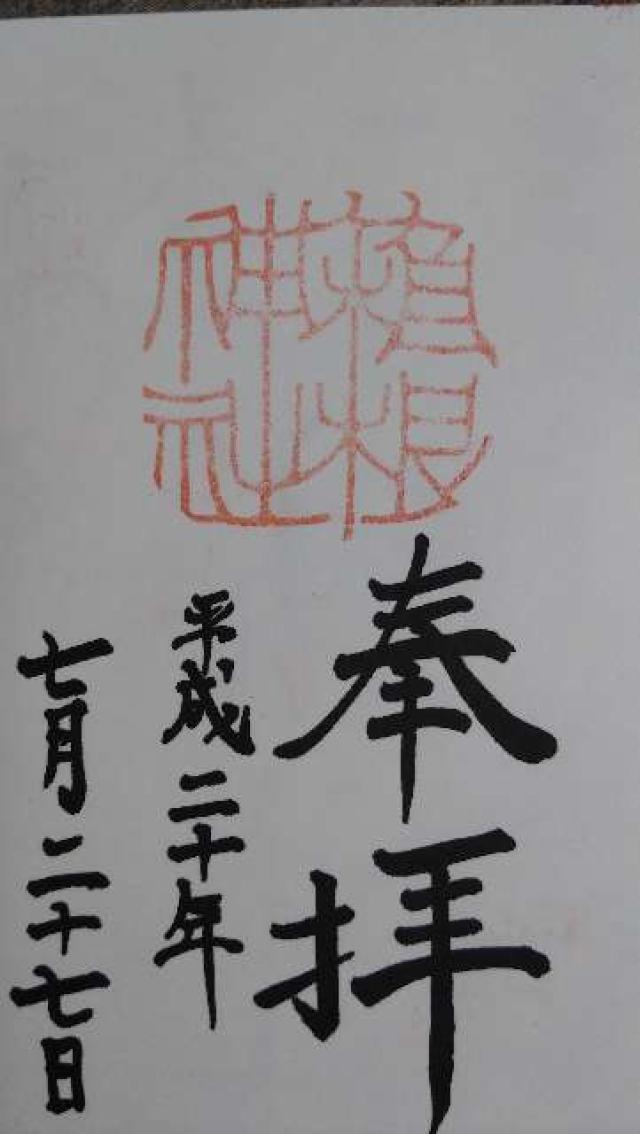 根
神社
奉拝
平成二十年
七月二十七日